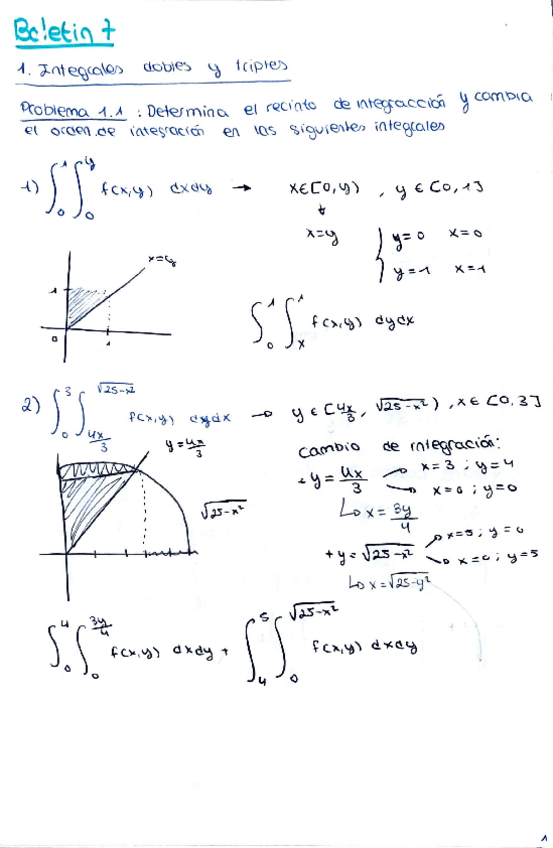 Boletin 7
1. Integrales dobles y triples
Problema 1.1 : Determina el recinto de integracción y cambia
el orden de integración en las siguientes integrales
1) ∫₀¹ ∫₀^y f(x,y) dxdy → x∈[0,y) , y ∈ [0,1]
x=y
y=0 x=0
y=1 x=1
x=y
1
0
1
∫₀¹ ∫ₓ¹ f(x,y) dydx
2) ∫₀³ ∫_{4x/3}^{√25-x²} f(x,y) dydx → y ∈ [4x/3, √25-x²) , x ∈ [0,3]
y=4x/3
√25-x²
cambio de integración:
+ y = 4x/3
x=3 ; y=4
x=0 ; y=0
x = 3y/4
+ y = √25-x²
x=5 ; y=0
x=0 ; y=5
x=√25-y²
∫₀⁴ ∫₀^{3y/4} f(x,y) dxdy + ∫₄⁵ ∫₀^{√25-x²} f(x,y) dxdy
1